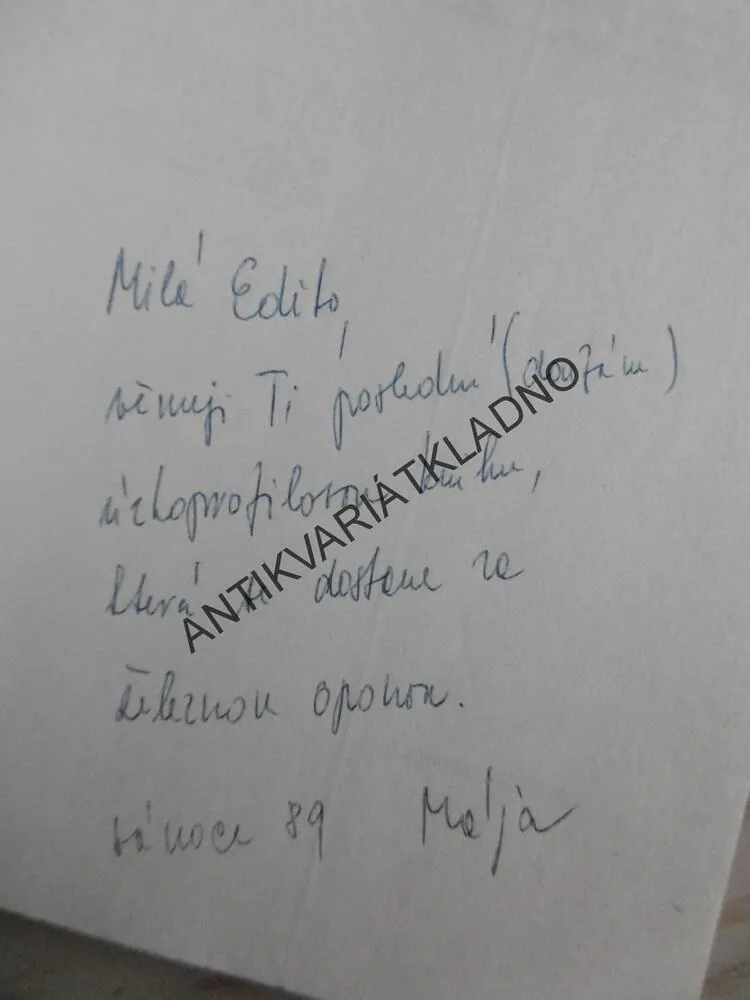 Milá Edito,
věnuji Ti poslední (doufám)
úzkoprofilovou knihu,
která se dostane za
železnou oponou.
vánoce 89 Mája
ANTIKVARIÁTKLADNO